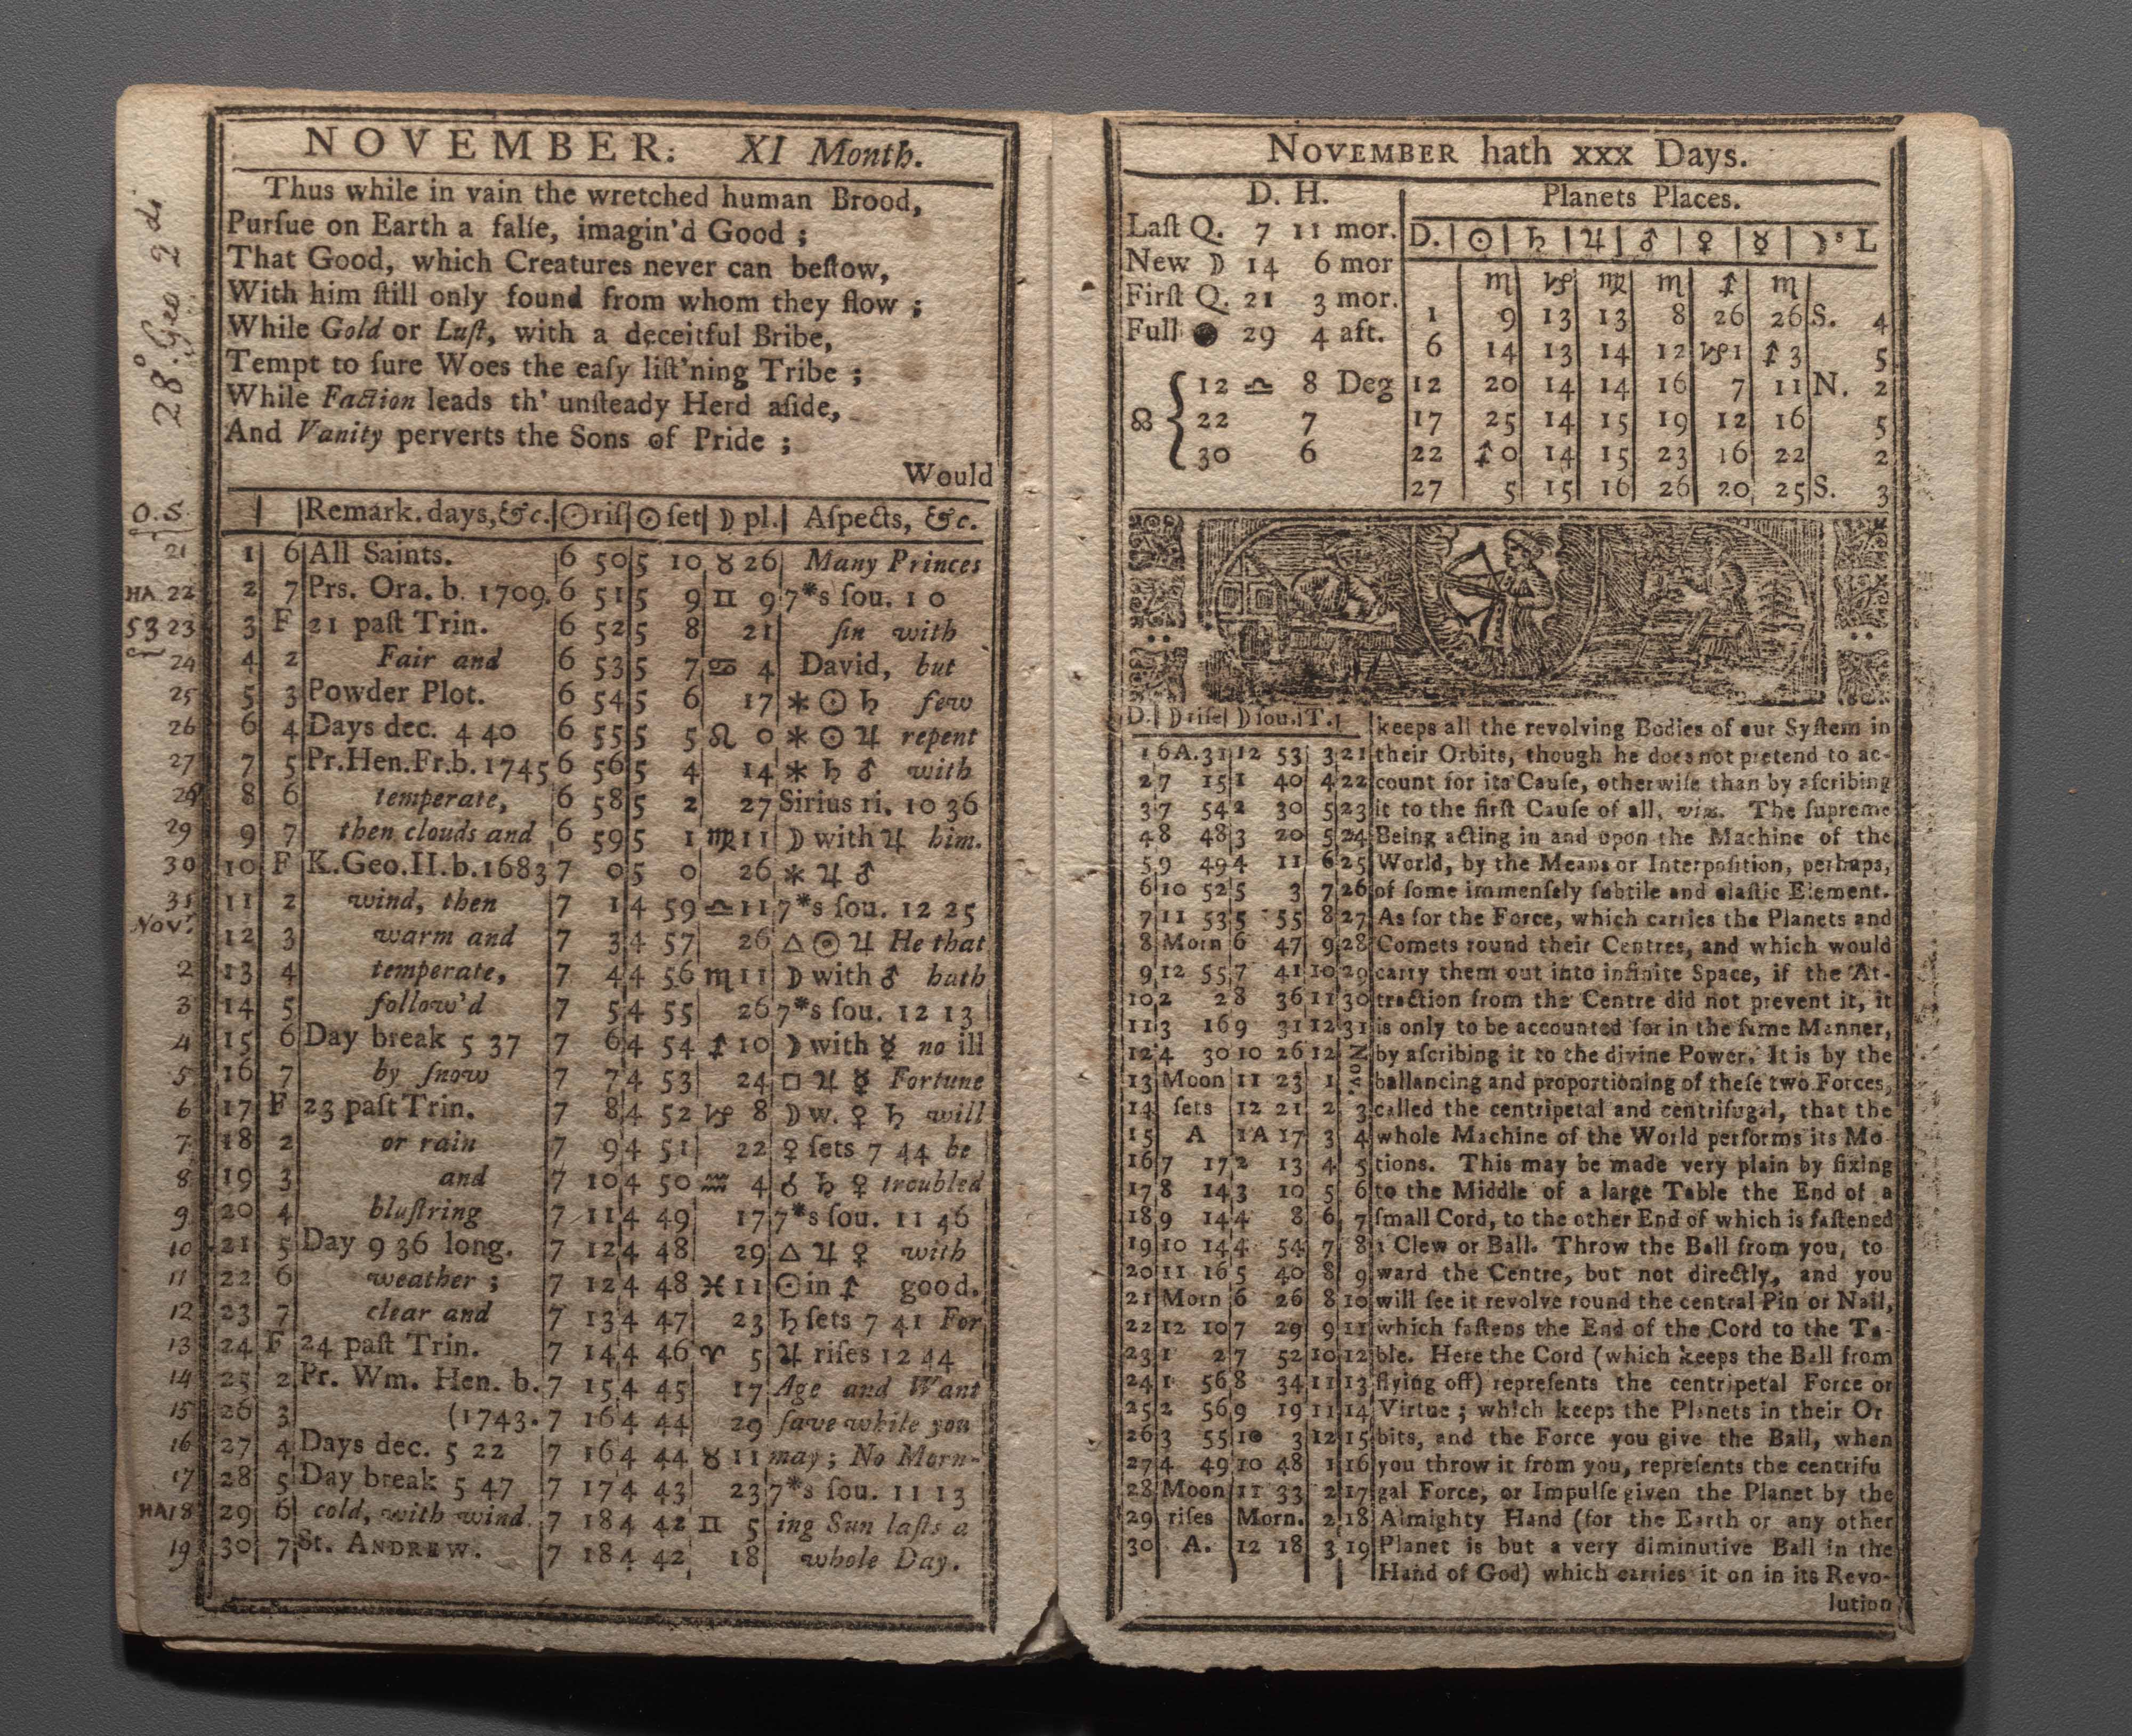 28.º Geo 2.di
NOVEMBER. XI Month.
Thus while in vain the wretched human Brood,
Purſue on Earth a falſe, imagin'd Good ;
That Good, which Creatures never can beſtow,
With him ſtill only found from whom they flow ;
While Gold or Luſt, with a deceitful Bribe,
Tempt to ſure Woes the eaſy liſt'ning Tribe ;
While Faction leads th' unſteady Herd aſide,
And Vanity perverts the Sons of Pride ;
Would
O.S. | | |Remark. days, &c.|☉riſ|☉ ſet|☽ pl.| Aſpects, &c.
21 1 6 All Saints. 6 50 5 10 ♉ 26 Many Princes
HA 22 2 7 Prs. Ora. b. 1709. 6 51 5 9 ♊ 9 7*s ſou. 1 0
53 23 3 F 21 paſt Trin. 6 52 5 8 21 ſin with
24 4 2 Fair and 6 53 5 7 ♋ 4 David, but
25 5 3 Powder Plot. 6 54 5 6 17 ⚹ ☉ ♄ few
26 6 4 Days dec. 4 40 6 55 5 5 ♌ 0 ⚹ ☉ ♃ repent
27 7 5 Pr.Hen.Fr.b. 1745 6 56 5 4 14 ⚹ ♄ ♂ with
28 8 6 temperate, 6 58 5 2 27 Sirius ri. 10 36
29 9 7 then clouds and 6 59 5 1 ♍ 11 ☽ with ♃ him.
30 10 F K.Geo.II.b.1683 7 0 5 0 26 ⚹ ♃ ♂
31 11 2 wind, then 7 1 4 59 ♎ 11 7*s ſou. 12 25
Novr. 12 3 warm and 7 3 4 57 26 △ ☉ ♃ He that
2 13 4 temperate, 7 4 4 56 ♏ 11 ☽ with ♂ hath
3 14 5 follow'd 7 5 4 55 26 7*s ſou. 12 13
4 15 6 Day break 5 37 7 6 4 54 ♐ 10 ☽ with ☿ no ill
5 16 7 by ſnow 7 7 4 53 24 □ ♃ ☿ Fortune
6 17 F 23 paſt Trin. 7 8 4 52 ♑ 8 ☽ w. ♀ ♄ will
7 18 2 or rain 7 9 4 51 22 ♀ ſets 7 44 be
8 19 3 and 7 10 4 50 ♒ 4 ☌ ♄ ♀ troubled
9 20 4 bluſtring 7 11 4 49 17 7*s ſou. 11 46
10 21 5 Day 9 36 long. 7 12 4 48 29 △ ♃ ♀ with
11 22 6 weather ; 7 12 4 48 ♓ 11 ☉ in ♐ good.
12 23 7 clear and 7 13 4 47 23 ♄ ſets 7 41 For
13 24 F 24 paſt Trin. 7 14 4 46 ♈ 5 ♃ riſes 12 44
14 25 2 Pr. Wm. Hen. b. 7 15 4 45 17 Age and Want
15 26 3 (1743. 7 16 4 44 29 ſave while you
16 27 4 Days dec. 5 22 7 16 4 44 ♉ 11 may; No Morn-
17 28 5 Day break 5 47 7 17 4 43 23 7*s ſou. 11 13
HA 18 29 6 cold, with wind. 7 18 4 42 ♊ 5 ing Sun laſts a
19 30 7 St. ANDREW. 7 18 4 42 18 whole Day.
NOVEMBER hath XXX Days.
D. H.
Laſt Q. 7 11 mor.
New ☽ 14 6 mor
Firſt Q. 21 3 mor.
Full ● 29 4 aft.
☊ { 12 ♎ 8 Deg
22 7
30 6
Planets Places.
D.| ☉ | ♄ | ♃ | ♂ | ♀ | ☿ | ☽'s L
♏ ♑ ♍ ♏ ♐ ♏
1 9 13 13 8 26 26 S. 4
6 14 13 14 12 ♑1 ♐3 5
12 20 14 14 16 7 11 N. 2
17 25 14 15 19 12 16 5
22 ♐0 14 15 23 16 22 2
27 5 15 16 26 20 25 S. 3
D.| ☽ riſe| ☽ ſou.|T.|
1 6A.31 12 53 3 21
2 7 15 1 40 4 22
3 7 54 2 30 5 23
4 8 48 3 20 5 24
5 9 49 4 11 6 25
6 10 52 5 3 7 26
7 11 53 5 55 8 27
8 Morn 6 47 9 28
9 12 55 7 41 10 29
10 2 2 8 36 11 30
11 3 16 9 31 12 31
12 4 30 10 26 12 Nov.
13 Moon 11 23 1
14 ſets 12 21 2 3
15 A 1A 17 3 4
16 7 17 2 13 4 5
17 8 14 3 10 5 6
18 9 14 4 8 6 7
19 10 14 4 54 7 8
20 11 16 5 40 8 9
21 Morn 6 26 8 10
22 12 10 7 29 9 11
23 1 2 7 52 10 12
24 1 56 8 34 11 13
25 2 56 9 19 11 14
26 3 55 10 3 12 15
27 4 49 10 48 1 16
28 Moon 11 33 2 17
29 riſes Morn. 2 18
30 A. 12 18 3 19
keeps all the revolving Bodies of our Syſtem in
their Orbits, though he does not pretend to ac-
count for its Cauſe, otherwiſe than by aſcribing
it to the firſt Cauſe of all, viz. The ſupreme
Being acting in and upon the Machine of the
World, by the Means or Interpoſition, perhaps,
of ſome immenſely ſubtile and elaſtic Element.
As for the Force, which carries the Planets and
Comets round their Centres, and which would
carry them out into infinite Space, if the At-
traction from the Centre did not prevent it, it
is only to be accounted for in the ſame Manner,
by aſcribing it to the divine Power. It is by the
ballancing and proportioning of theſe two Forces,
called the centripetal and centrifugal, that the
whole Machine of the World performs its Mo-
tions. This may be made very plain by fixing
to the Middle of a large Table the End of a
ſmall Cord, to the other End of which is faſtened
a Clew or Ball. Throw the Ball from you, to
ward the Centre, but not directly, and you
will ſee it revolve round the central Pin or Nail,
which faſtens the End of the Cord to the Ta-
ble. Here the Cord (which keeps the Ball from
flying off) repreſents the centripetal Force or
Virtue ; which keeps the Planets in their Or
bits, and the Force you give the Ball, when
you throw it from you, repreſents the centrifu
gal Force, or Impulſe given the Planet by the
Almighty Hand (for the Earth or any other
Planet is but a very diminutive Ball in the
Hand of God) which carries it on in its Revo-
lution